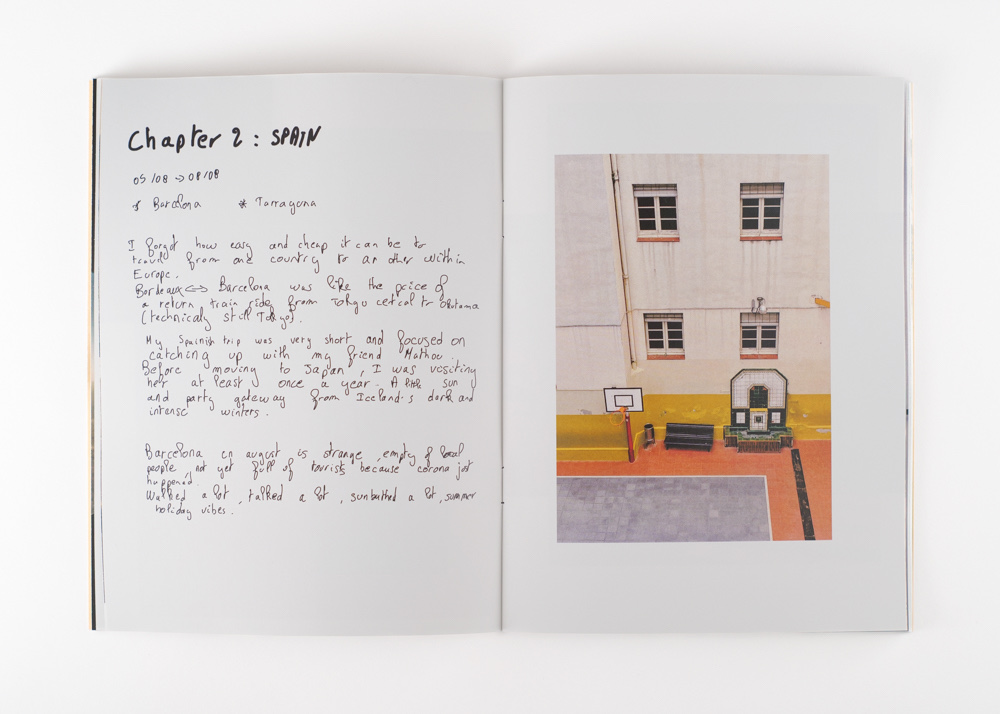 Chapter 2 : SPAIN
05/08 → 08/08
* Barcelona * Tarragona
I forgot how easy and cheap it can be to
travel from one country to an other within
Europe.
Bordeaux <=> Barcelona was like the price of
a return train ride from Tokyo central to Okutama
(technically still Tokyo).
My Spainish trip was very short and focused on
catching up with my friend
Before moving to Japan, I was visiting
her at least once a year. A little sun
and party gateway from Iceland's dark and
intense winters.
Barcelona in august is strange, empty of local
people, not yet full of tourists because corona just
happened.
Walked a lot, talked a lot, sunbathed a lot, summer
holiday vibes.